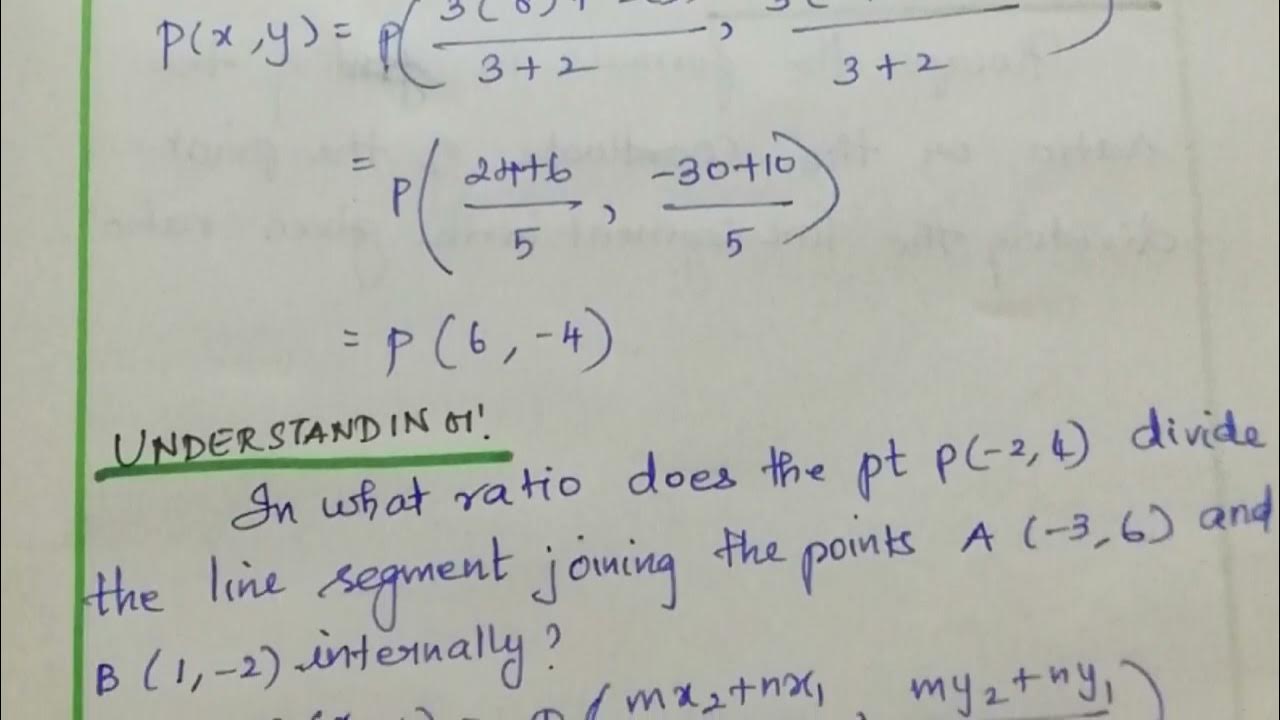 P(x,y) = P( 3(8)+ / 3+2 , / 3+2 )
= P( 24+6 / 5 , -30+10 / 5 )
= P (6, -4)
UNDERSTANDING!
In what ratio does the pt P(-2,4) divide
the line segment joining the points A (-3,6) and
B (1,-2) internally?
( mx₂+nx₁ , my₂+ny₁ )